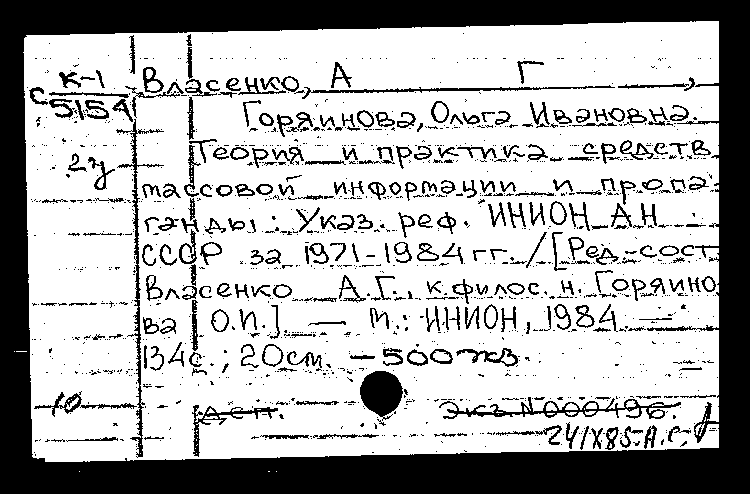 К-1
С 5154
2 ч
Власенко, А Г ,
Горяинова, Ольга Ивановна.
Теория и практика средств
массовой информации и пропа-
ганды : Указ. реф. ИНИОН АН
СССР за 1971-1984 гг. / [Ред.-сост.
Власенко А.Г., к.филос.н. Горяино
ва О.И.]. — М.: ИНИОН, 1984. —
134с. ; 20см. — 500экз.
10
Д.с.п. Экз. N000496.
24/IX85-А.С.